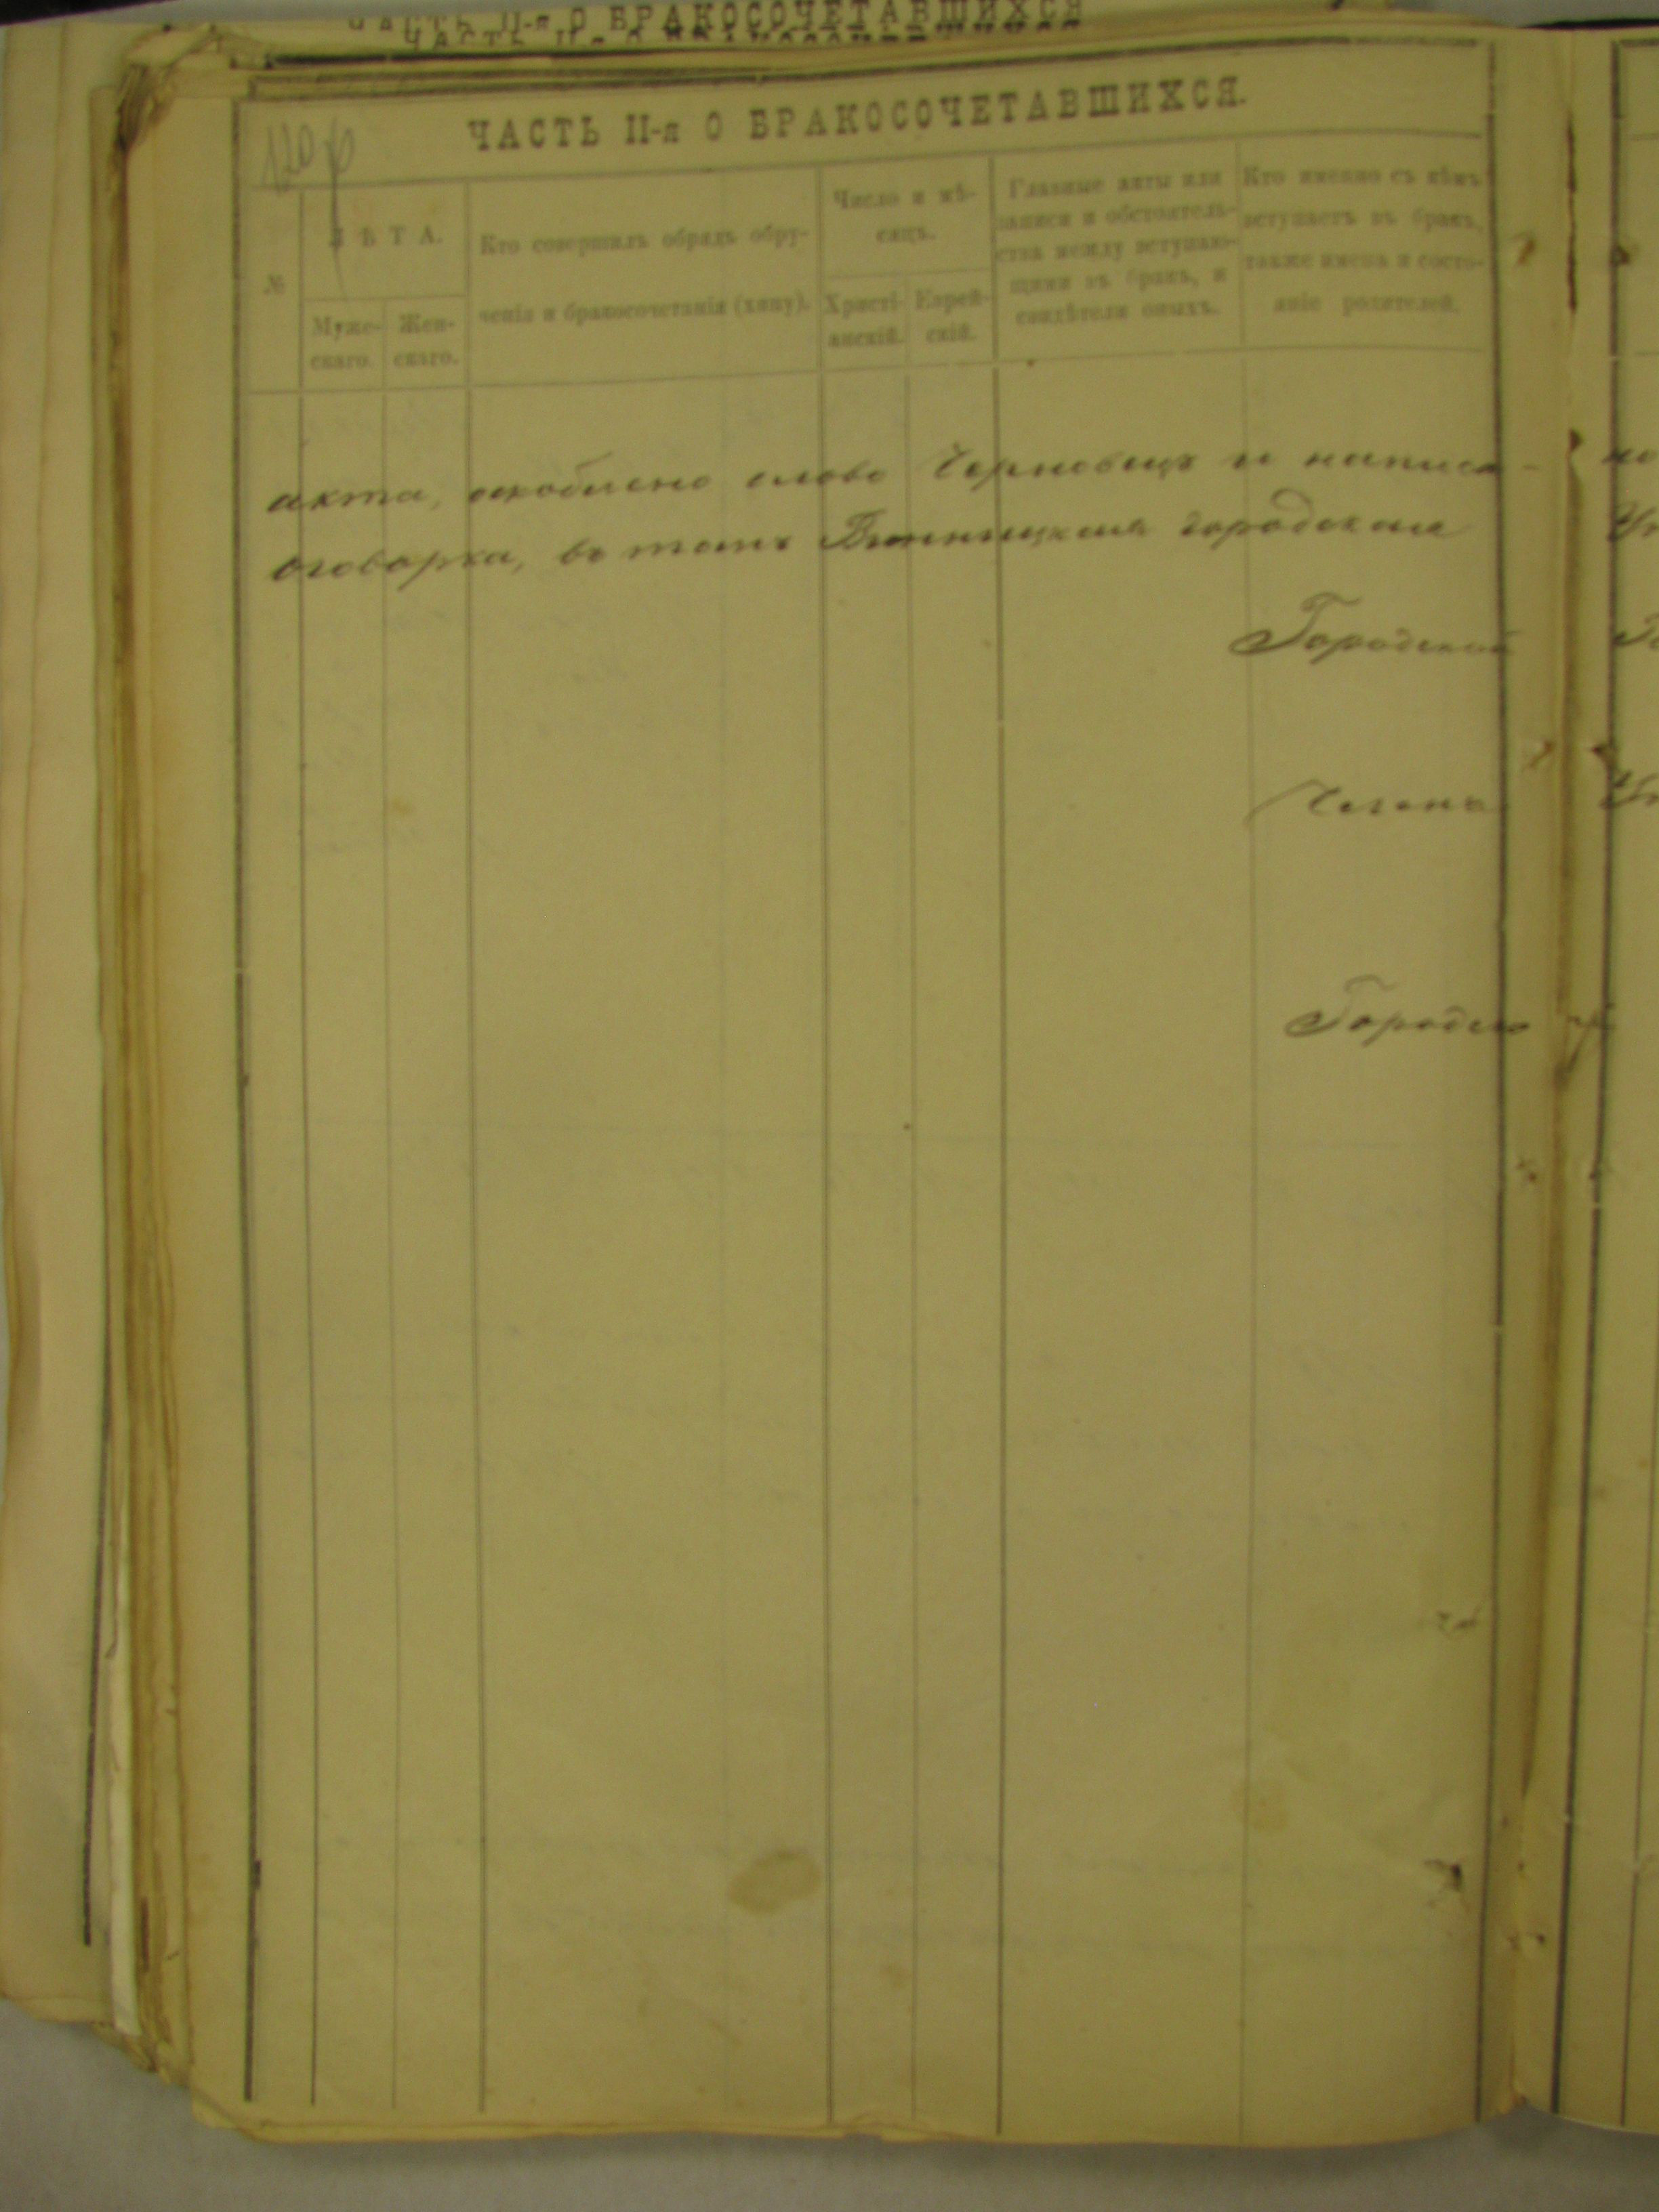 ЧАСТЬ II-я О БРАКОСОЧЕТАВШИХСЯ
ЧАСТЬ II-я О БРАКОСОЧЕТАВШИХСЯ.
№
ЛѢТА.
Муже-
скаго.
Жен-
скаго.
Кто совершилъ обрядъ обру-
ченія и бракосочетанія (хипу).
Число и мѣ-
сяцъ.
Христі-
анскій.
Еврей-
скій.
Главные акты или
записи и обстоятель-
ства между вступаю-
щими въ бракъ, и
свидѣтели оныхъ.
Кто именно съ кѣмъ
вступаетъ въ бракъ,
также имена и состо-
яніе родителей.
акта, оскоблено слово Черновецъ и написа-
оговорка, въ томъ Винницкая городская
Городской
Членъ
Городско